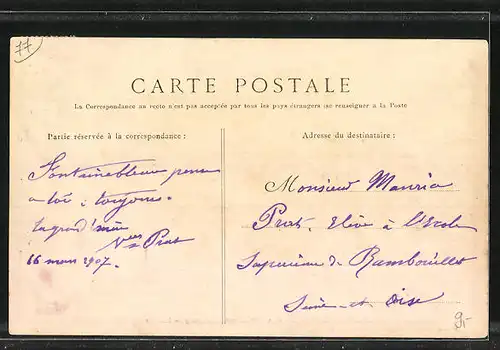 77
CARTE POSTALE
La Correspondance au recto n'est pas acceptée par tous les pays étrangers (se renseigner à la Poste
Partie réservée à la correspondance :
Adresse du destinataire :
Fontainebleau pense
a toi : toujours.
ta grand'mère
Vve Prat
16 mars 1907.
Monsieur
Prat. Elève à l'Ecole
Supérieure de Rambouillet
Seine-et-Oise
9.-